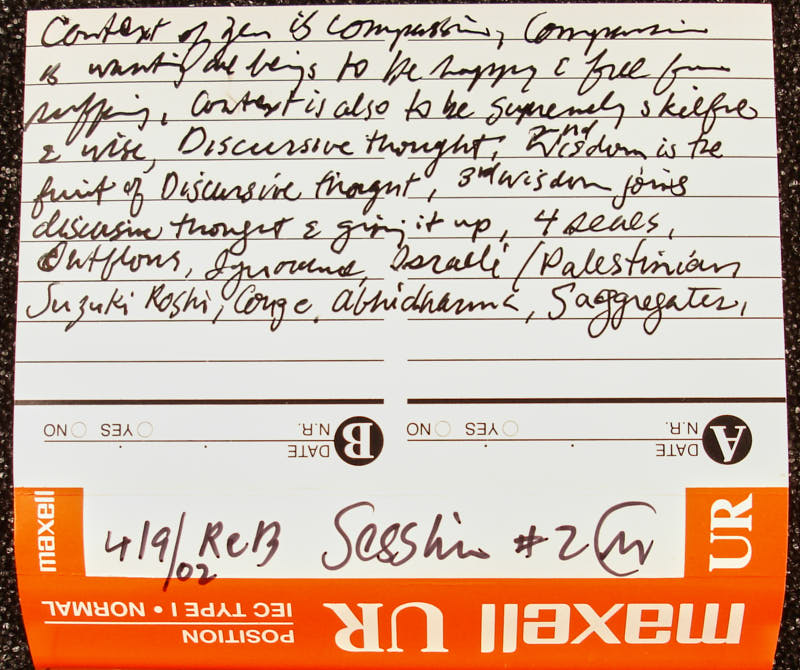 Context of Zen is Compassion, Compassion
is wanting all beings to be happy & free from
suffering, Context is also to be supremely skilful
& wise, Discursive thought, 2nd Wisdom is the
fruit of Discursive thought, 3rd wisdom joins
discursive thought & giving it up, 4 seals,
Outflows, Ignorance, Israeli / Palestinian
Suzuki Roshi, Conze, abhidharma, 5 aggregates,
B DATE N.R. YES NO
A DATE N.R. YES NO
maxell 4/9/02 ReB Sesshin #2 UR
POSITION
IEC TYPE I • NORMAL
maxell UR